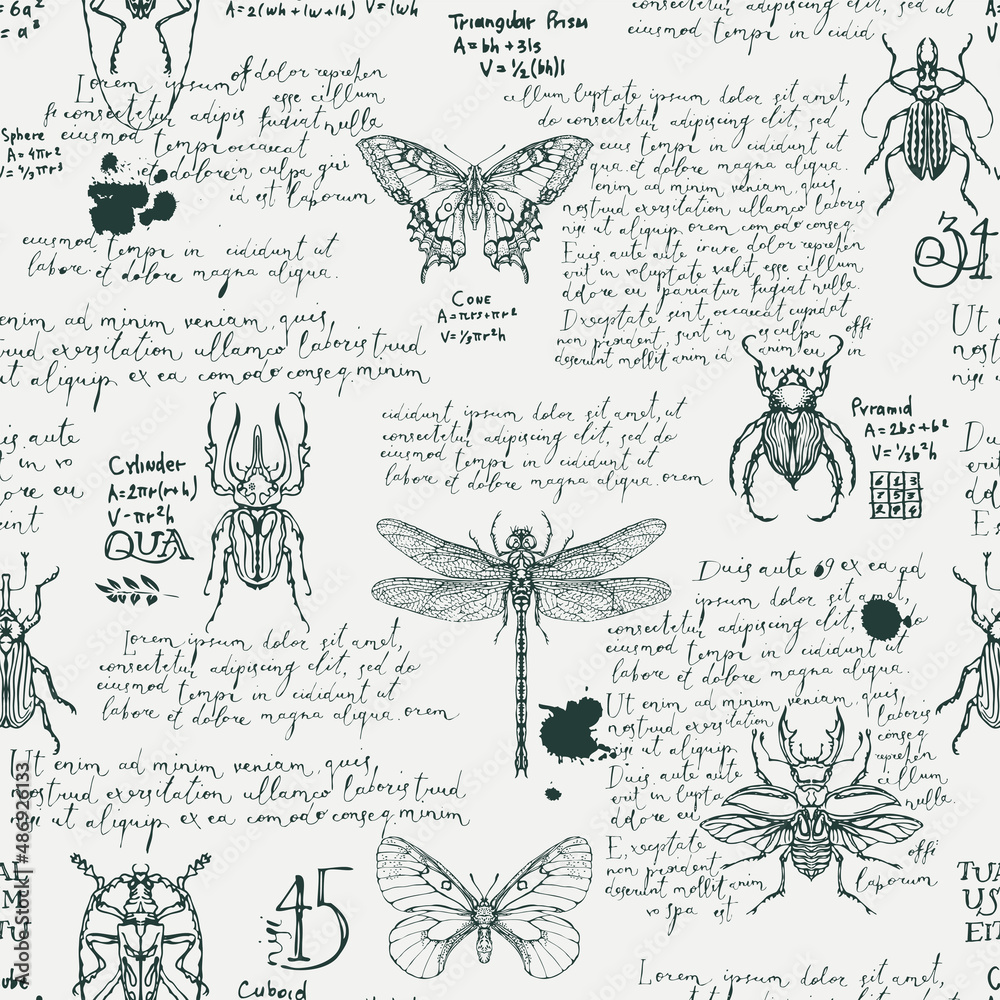 = 6a²
= a³
A = 2(wh + lw + lh) V = lwh
Triangular Prism
A = bh + 3ls
V = ½(bh)l
consectetur adipiscing elit, sed do
eiusmod tempi in cidid
Lorem ipsum of dolor reprehen
fi consectetur adipis esse cillum
fugiat nulla
Sphere
A = 4πr²
V = 4/3πr³
eiusmod tempi occaecat
et dolore in culpa qui
id est laborum
eiusmod tempi in cididunt ut
labore et dolore magna aliqua.
enim ad minim veniam, quis
trud exersitation ullamco laboris trud
ut aliquip ex ea comodo conseq. minim
cillum luptate ipsum dolor sit amet,
do consectetur adipiscing elit, sed do
eius tempi in cididunt ut
labore et dolore magna aliqua.
enim ad minim veniam, quis
nostrud exersitation ullamco laboris
nisi ut aliquip orem comodo conseq.
Euis aute aute irure dolor reprehen
erit in voluptate velit esse cillum
dolore eu pariatur fugiat nulla.
Dxceptate sint occaecat cupidat
non proident, sunt in es culpa offi
deserunt mollit anim id anim eu in
Q34
Cone
A = πrs + πr²
V = ⅓πr²h
Ut
nost
nisi
cididunt ipsum dolor sit amet, ut
consectetur adipiscing elit, sed do
eiusmod tempi in cididunt ut
labore et dolore magna aliqua. orem
Pyramid
A = 2bs + b²
V = ⅓b²h
is aute
t in vo
ore eu
eint
Cylinder
A = 2πr(r+h)
V - πr²h
QUA
Duis aute 69 ex ea ad
ipsum dolor sit amet,
consectetur adipiscing elit, sed do
eiusmod tempi in cididunt ut
labore et dolore magna aliqua.
Ut enim ad minim veniam, quis
nostrud exersitation laboris
nisi ut aliquip conseq
Duis aute aute reprehen
erit in lupta cillum
dolore eu nulla.
E, xceptate offi
non proident
deserunt mollit anim laborum
vo spa est
Lorem ipsum dolor sit amet,
consectetur adipiscing elit, sed do
eiusmod tempi in cididunt ut
labore et dolore magna aliqua. orem
Ut enim ad minim veniam, quis
nostrud exersitation ullamco laboris trud
si ut aliquip ex ea comodo conseq. minim
45
Cuboid
TUR
US
EIT
Lorem ipsum dolor sit amet,
consectetur adipiscing elit, sed do
Adobe Stock | #486926133